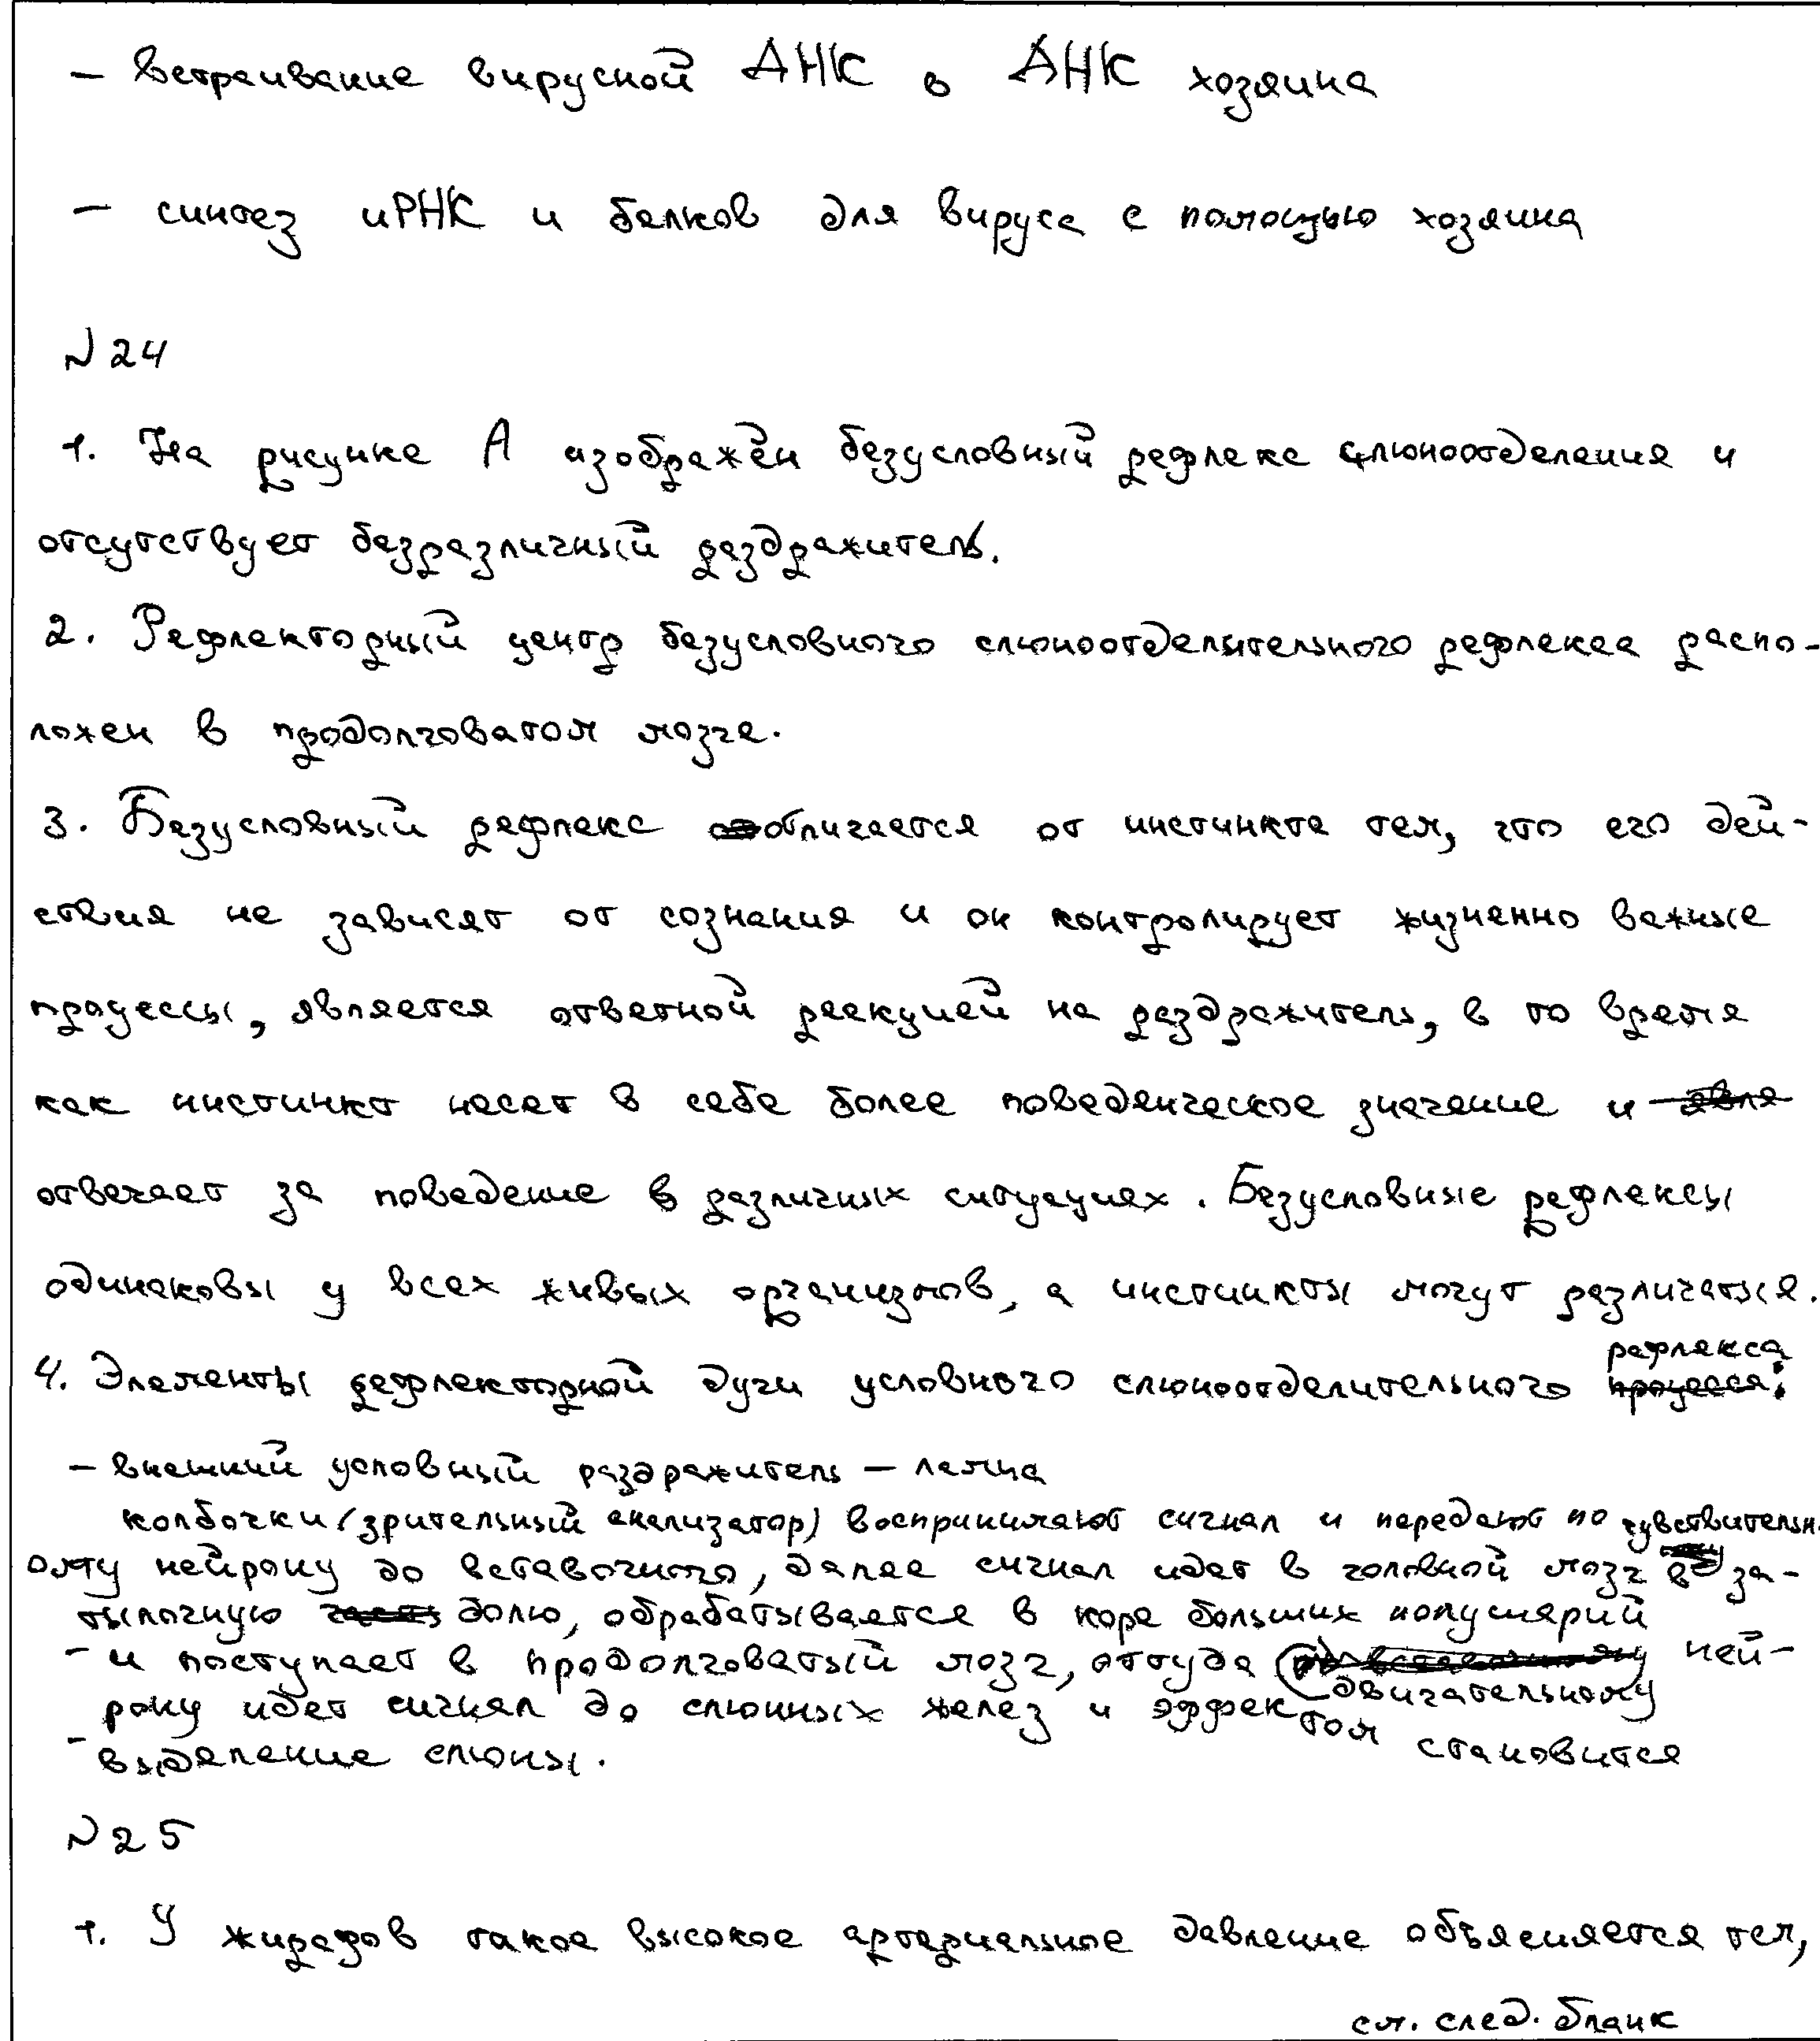 - встраивание вирусной ДНК в ДНК хозяина
- синтез иРНК и белков для вируса с помощью хозяина
N 24
1. На рисунке А изображён безусловный рефлекс слюноотделения и
отсутствует безразличный раздражитель.
2. Рефлекторный центр безусловного слюноотделительного рефлекса распо-
ложен в продолговатом мозге.
3. Безусловный рефлекс отличается от инстинкта тем, что его дей-
ствия не зависят от сознания и он контролирует жизненно важные
процессы, является ответной реакцией на раздражитель, в то время
как инстинкт несет в себе более поведенческое значение и явля
отвечает за поведение в различных ситуациях. Безусловные рефлексы
одинаковы у всех живых организмов, а инстинкты могут различаться.
4. Элементы рефлекторной дуги условного слюноотделительного процесса рефлекса:
- внешний условный раздражитель - лампа
колбочки (зрительный анализатор) воспринимают сигнал и передают по чувствительн
ому нейрону до вставочного, далее сигнал идет в головной мозг в за-
тылочную часть долю, обрабатывается в коре больших полушарий
- и поступает в продолговатый мозг, откуда по вставочному двигательному ней-
рону идет сигнал до слюнных желез и эффектом становится
- выделение слюны.
N 25
1. У жирафов такое высокое артериальное давление объясняется тем,
см. след. бланк